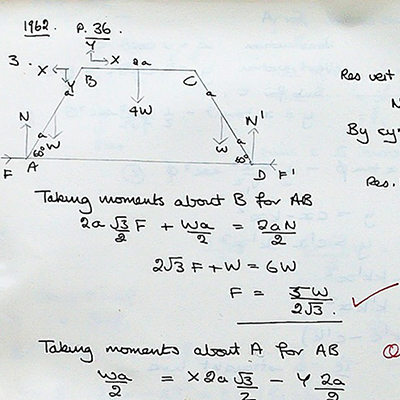 1962. P. 36
3.
Y
X 2a
X
Y B C
a a
N 4W N'
a a
W W
60° 60°
F A D F'
Res vert
N
By sy
Res.
Taking moments about B for AB
2a √3/2 F + Wa/2 = 2aN/2
2√3 F + W = 6W
F = 5W/2√3.
Taking moments about A for AB
Wa/2 = X 2a √3/2 - Y 2a/2